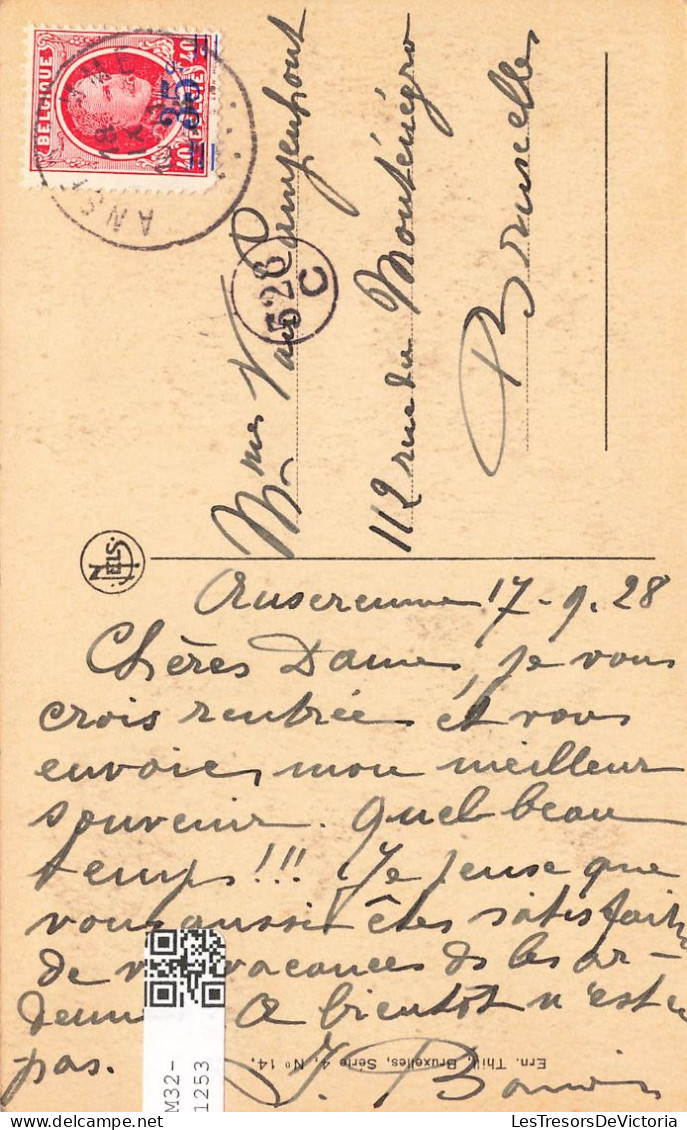 BELGIQUE
BELGIË
40 40
35
ANS
528
C
Mmes Van Campenhout
112 rue du Monténégro
Bruxelles
NELS
Anseremme 17-9.28
Chères Dames, je vous
crois rentrée et vous
envoie mon meilleur
souvenir. Quel beau
temps!!! Je pense que
vous aussi êtes satisfaits
de vacances ds les ar-
denn A bientôt n'est-ce
pas. J.
Ern. Thill, Bruxelles, Série 4, No 14.
M32-
1253
LesTresorsDeVictoria.com